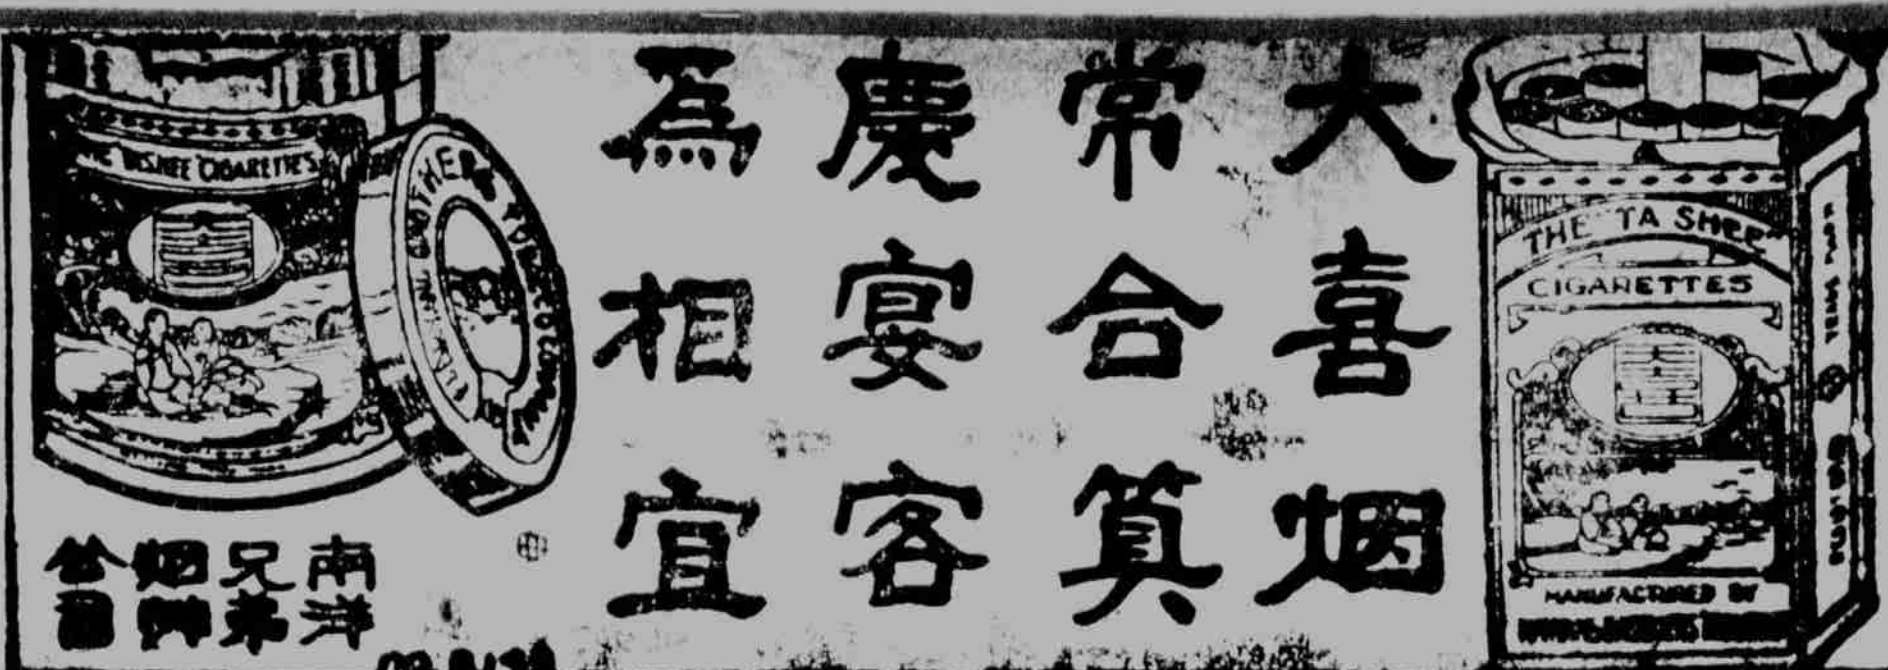 大喜烟
常合算
慶宴客
為相宜
THE "TA SHEE"
CIGARETTES
MANUFACTURED BY
TRADE MARK
CIGARETTES
BROTHERS TOBACCO COMPANY
南洋
兄弟
烟艸
公司